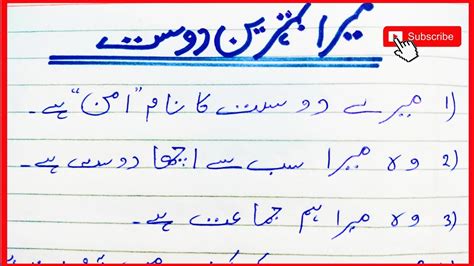 میرا بہترین دوست
Subscribe
1) میرے دوست کا نام "امن" ہے۔
2) وہ میرا سب سے اچھا دوست ہے۔
3) وہ میرا ہم جماعت ہے۔